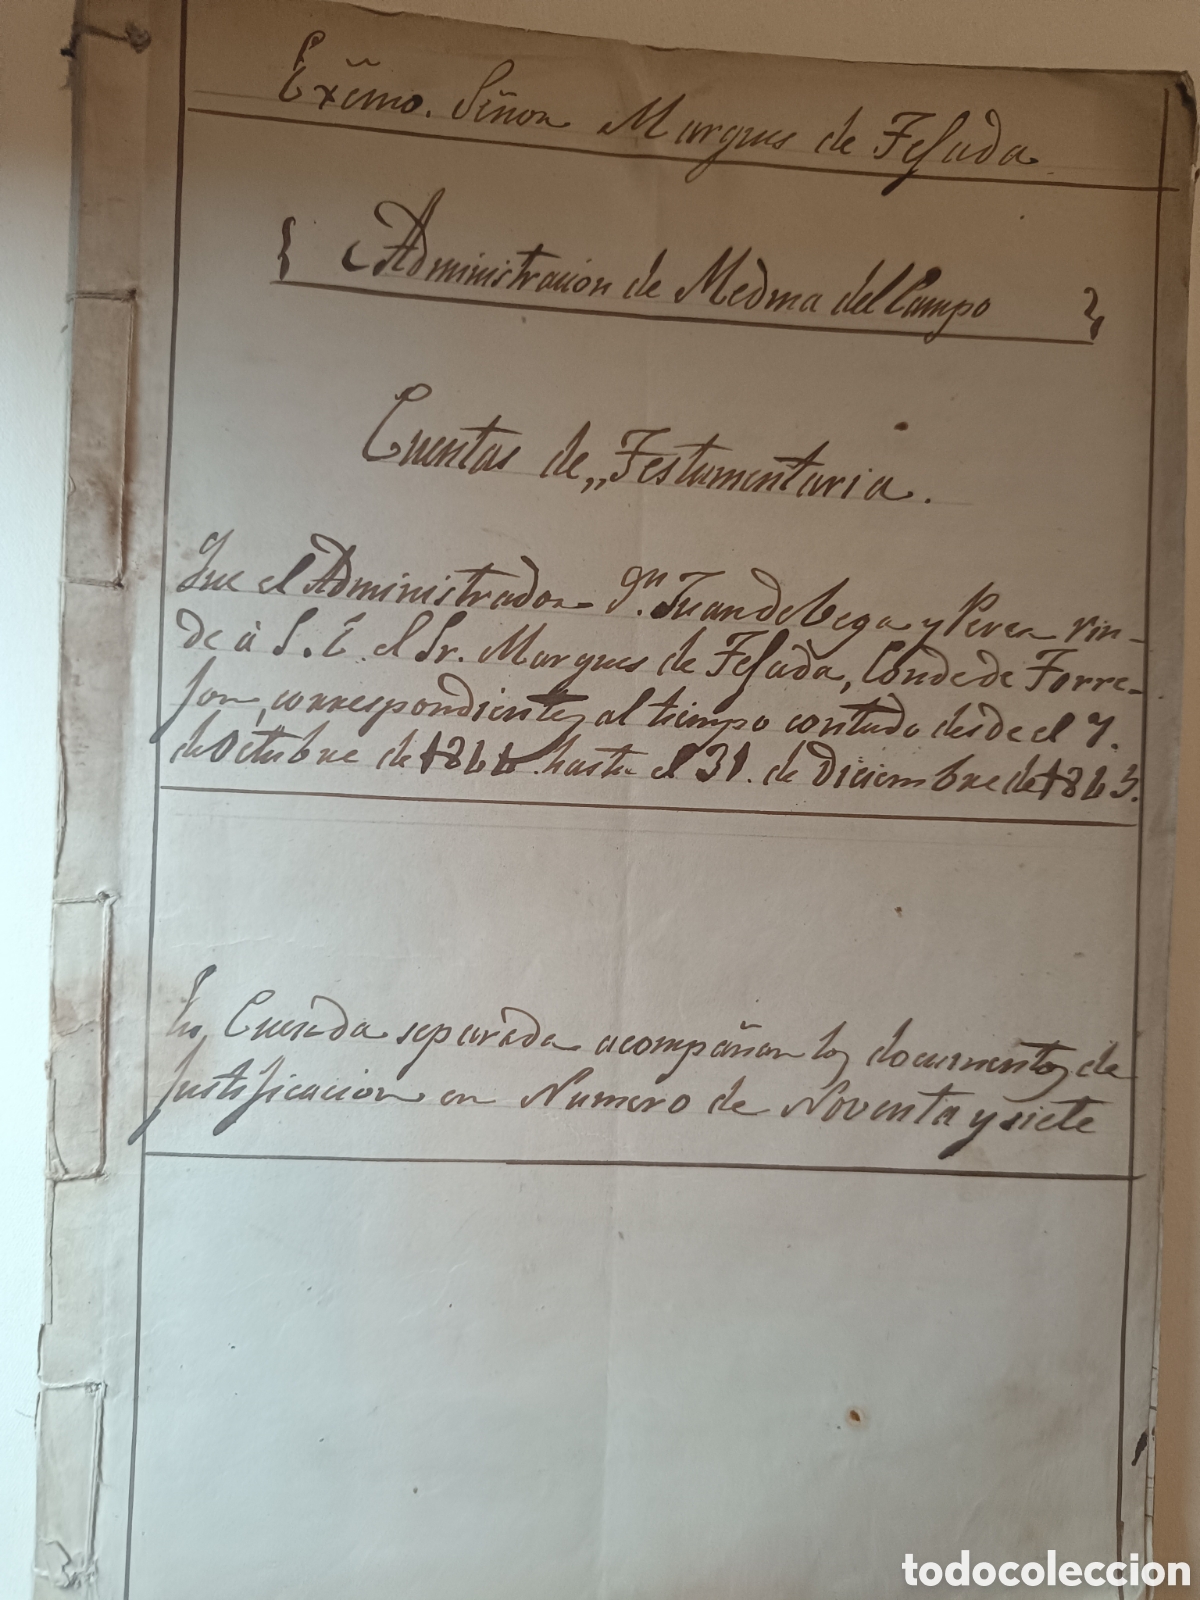 Exc̃mo. Señor Marques de Tejada
Administracion de Medina del Campo
Cuentas de,, Testamentaria.
Que el Administrador Dn. Juan de Vega y Perea rin-
de á S. E. el Sr. Marques de Tejada, Conde de Torre-
jon, correspondientes al tiempo contado desde el 7.
de Octubre de hasta el 31. de Diciembre de 1863.
En separada acompañan los documentos de
Justificacion en Numero de Noventa y siete
todocoleccion